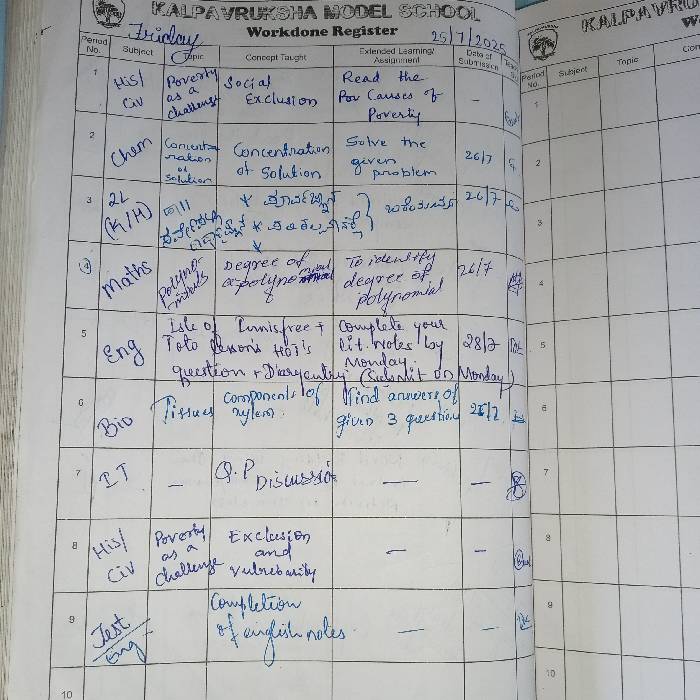 KALPAVRUKSHA MODEL SCHOOL
Workdone Register
Friday
25/7/2025
Period No. Subject Topic Concept Taught Extended Learning/ Assignment Date of Submission
1 His/ Civ Poverty as a challenge Social Exclusion Read the Pov Causes of Poverty -
2 Chem Concentration of solution Concentration of Solution Solve the given problem 26/7
3 2L (K/H) 26/7
4 Maths Polynomials Degree of a polynomial To identify degree of polynomial 26/7
5 Eng Isle of Innisfree + Toto lesson's HOT's question + Diary entry Complete your lit. notes by Monday. (Submit on Monday) 28/7
6 Bio Tissues components of xylem. Find answers of given 3 question 26/7
7 IT - Q.P Discussio - -
8 His/ Civ Poverty as a challenge Exclusion and vulnerbarity - -
9 Test/ Eng Completion of english notes - -
10
KALPAVRU
Period No. Subject Topic Con
1
2
3
4
5
6
7
8
9
10